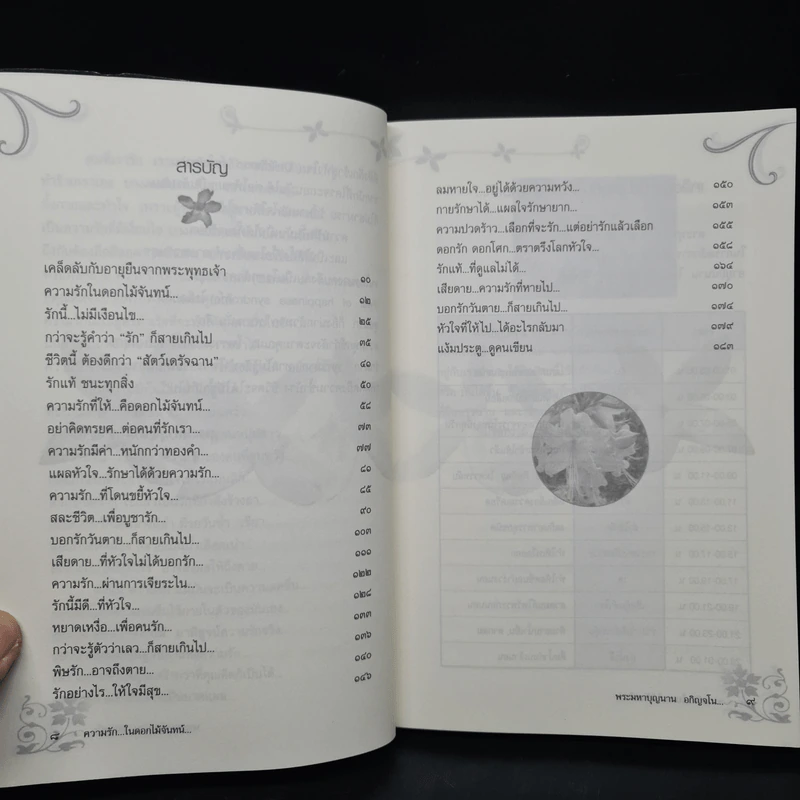 สารบัญ
เคล็ดลับกับอายุยืนจากพระพุทธเจ้า ๑๐
ความรักในดอกไม้จันทน์... ๑๒
รักนี้...ไม่มีเงื่อนไข... ๒๕
กว่าจะรู้คำว่า “รัก” ก็สายเกินไป ๓๕
ชีวิตนี้ ต้องดีกว่า “สัตว์เดรัจฉาน” ๔๑
รักแท้ ชนะทุกสิ่ง ๕๐
ความรักที่ให้...คือดอกไม้จันทน์... ๕๔
อย่าคิดทรยศ...ต่อคนที่รักเรา... ๗๓
ความรักมีค่า...หนักกว่าทองคำ... ๗๗
แผลหัวใจ...รักษาได้ด้วยความรัก... ๘๑
ความรัก...ที่โดนขยี้หัวใจ... ๘๕
สละชีวิต...เพื่อบูชารัก... ๙๐
บอกรักวันตาย...ก็สายเกินไป... ๑๐๓
เสียดาย...ที่หัวใจไม่ได้บอกรัก... ๑๑๑
ความรัก...ผ่านการเจียระไน... ๑๒๒
รักนี้มีดี...ที่หัวใจ... ๑๒๘
หยาดเหงื่อ...เพื่อคนรัก... ๑๓๓
กว่าจะรู้ตัวว่าเลว...ก็สายเกินไป... ๑๓๖
พิษรัก...อาจถึงตาย... ๑๔๐
รักอย่างไร...ให้ใจมีสุข... ๑๔๖
๘ ความรัก...ในดอกไม้จันทน์...
ลมหายใจ...อยู่ได้ด้วยความหวัง... ๑๕๐
กายรักษาได้...แผลใจรักษายาก... ๑๕๓
ความปวดร้าว...เลือกที่จะรัก...แต่อย่ารักแล้วเลือก ๑๕๕
ดอกรัก ดอกโศก...ตราตรึงโลกหัวใจ... ๑๕๘
รักแท้...ที่ดูแลไม่ได้... ๑๖๔
เสียดาย...ความรักที่หายไป... ๑๗๐
บอกรักวันตาย...ก็สายเกินไป... ๑๗๔
หัวใจที่ให้ไป...ได้อะไรกลับมา ๑๗๙
แง้มประตู...ดูคนเขียน ๑๘๓
พระมหาบุญนาน อกิญจโน... ๙